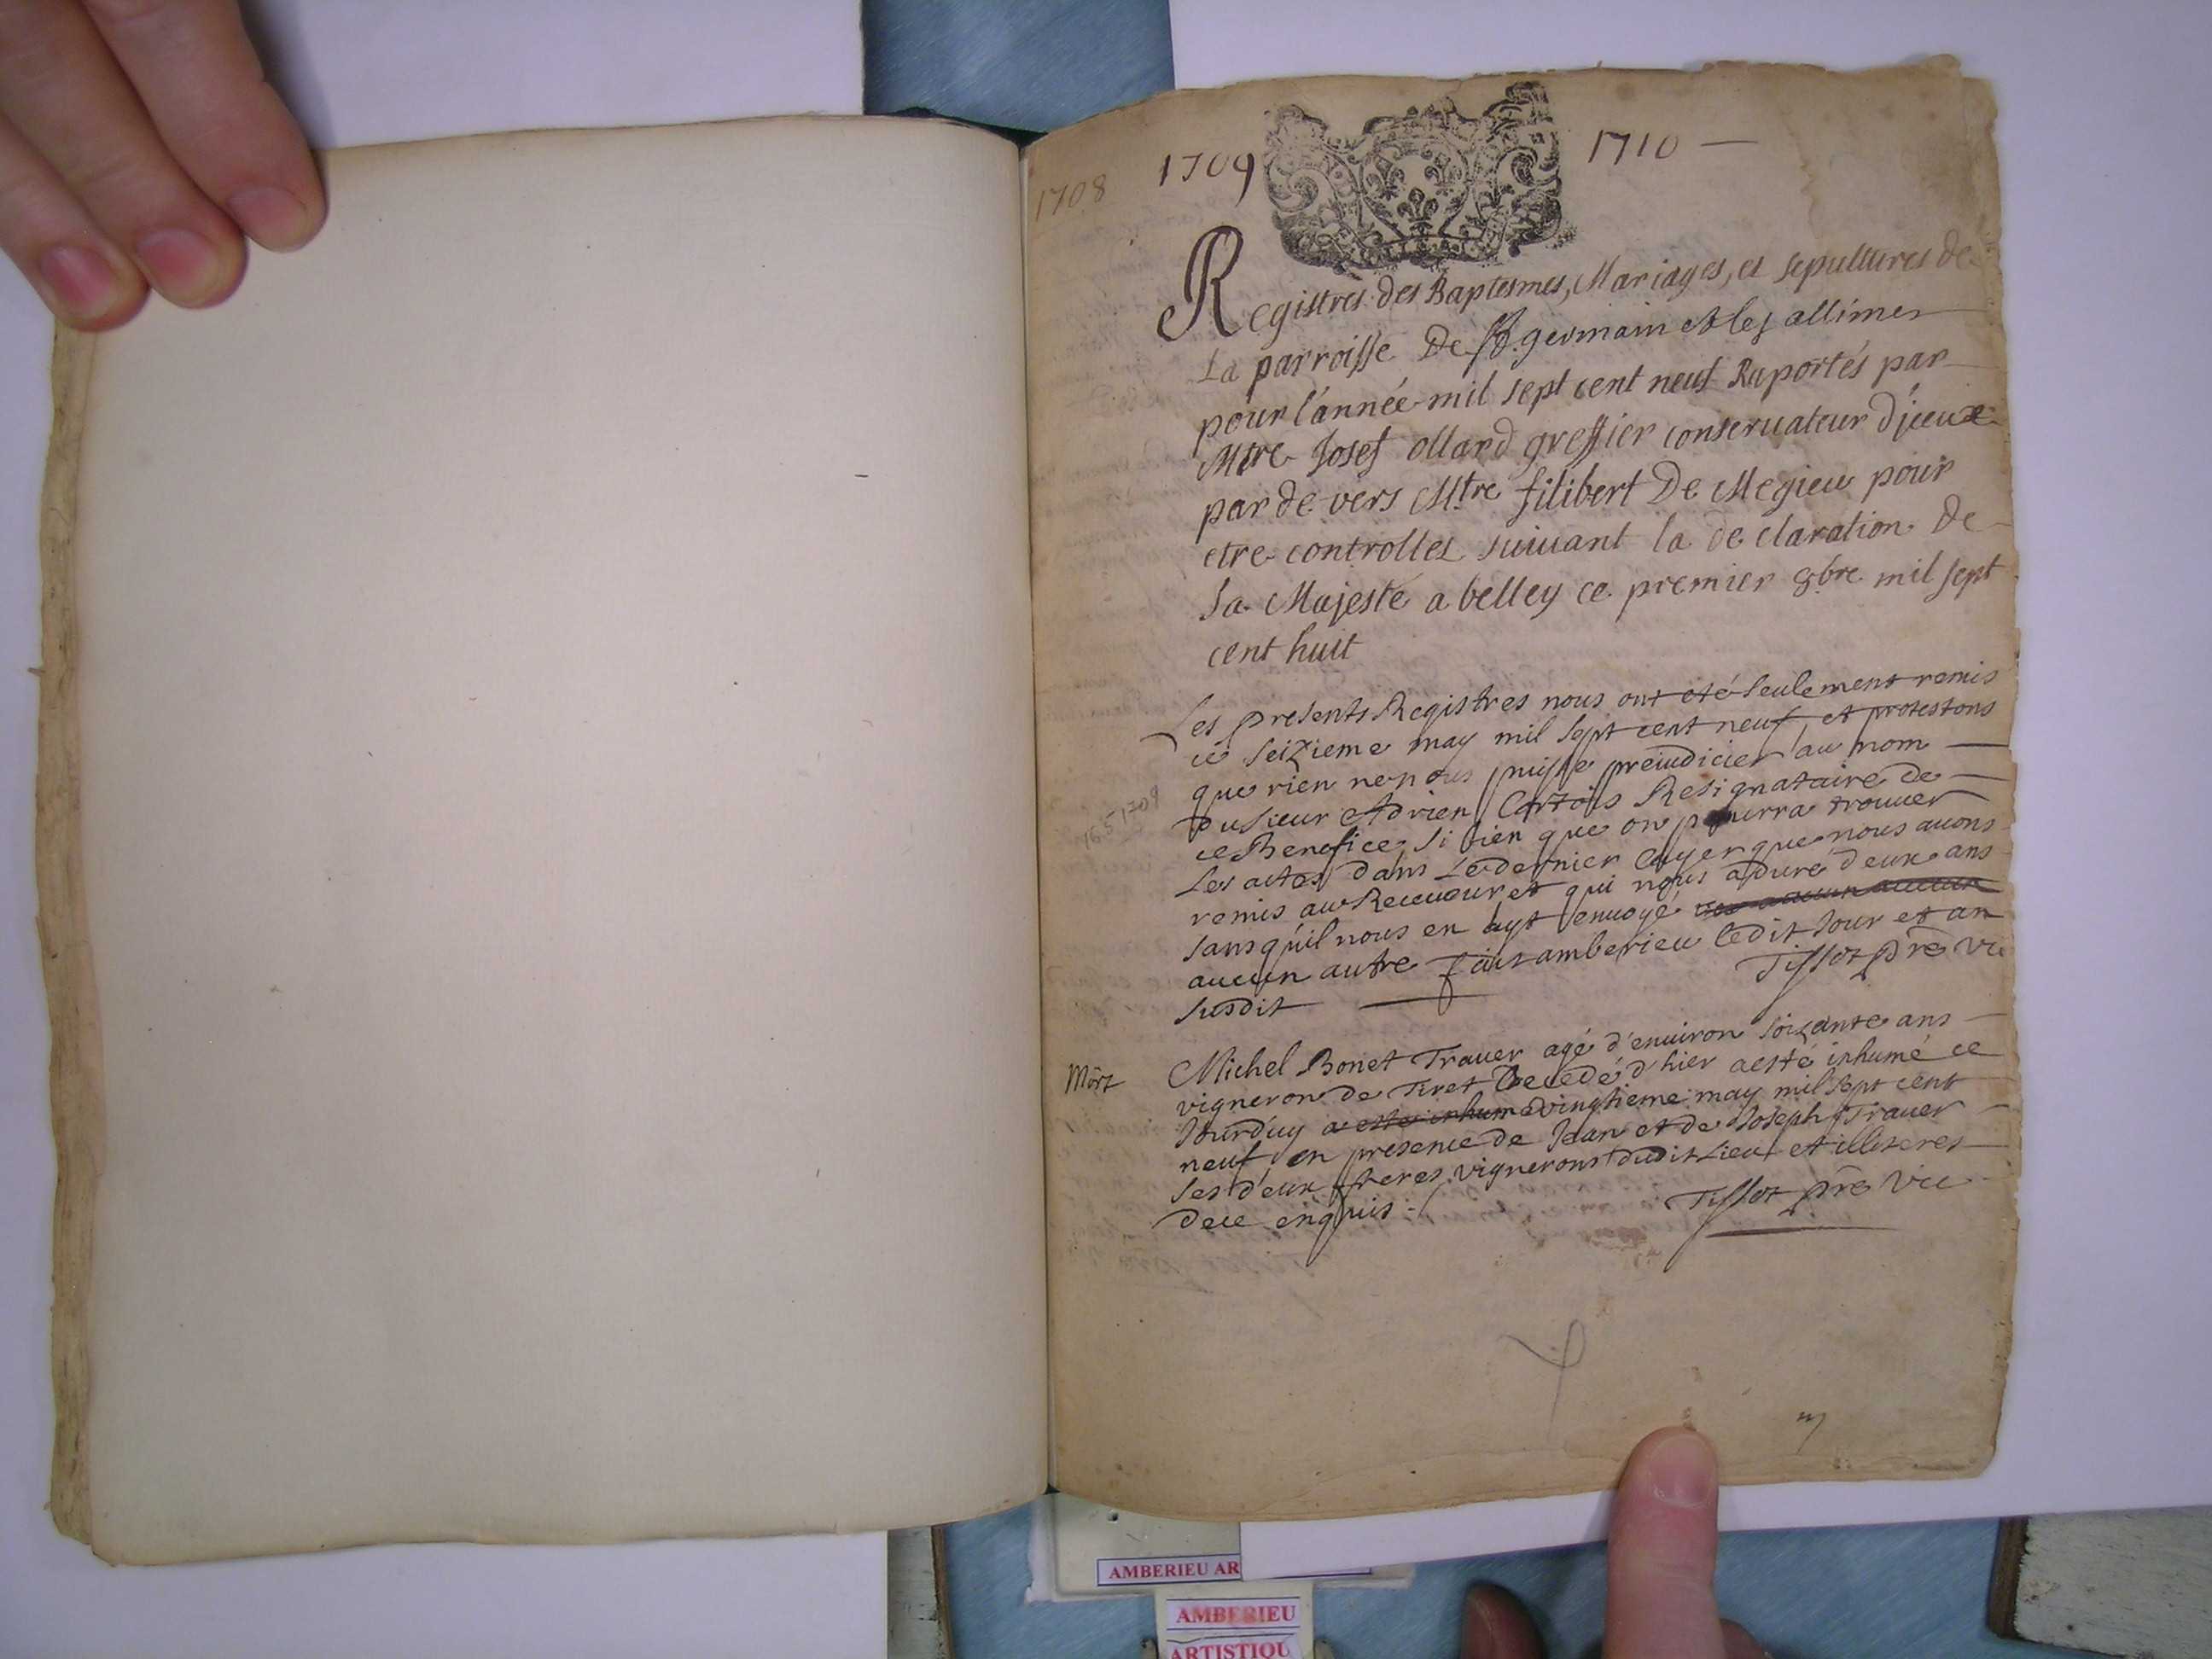 1708
1709
1710 —
Registres des Baptesmes, Mariages, et sepultures de
La parroisse De St. germain et les allimes
pour l'année mil sept cent neuf Raportés par
Mtre Josef ollard greffier conservateur d'jceux
par de vers Mtre filibert De Megieu pour
etre controlles suiuant la de claration De
Sa Majesté a belley ce premier 8bre mil sept
cent huit
Les presents Registres nous ont eté seulement remis
ce seizieme may mil sept cent neuf, et protestons
que rien ne nous puisse preiudicier au nom
du sieur Adrien Resignataire de
ce Benefice, si bien que on pourra trouuer
Les actes dans Le dernier Cayer que nous auons
remis au Receueur et qui nous a duré deux ans
sans qu'il nous en ayt enuoyé
aucun autre fait amberieu Cedit Jour et an
susdit
Tissot pre vic
16.5.1709
Mort
Michel Bonet Trauer agé d'enuiron soixante ans
vigneron de Tiret Decedé d'hier a esté inhumé ce
Jourd'uy a esté inhumé vingtieme may mil sept cent
neuf, en presence de Jean et de Joseph Trauer
ses deux freres vignerons dudit Lieu et illiteres
de ce enquis ./.
Tissot pre vic
AMBERIEU AR
AMBERIEU
ARTISTIQU